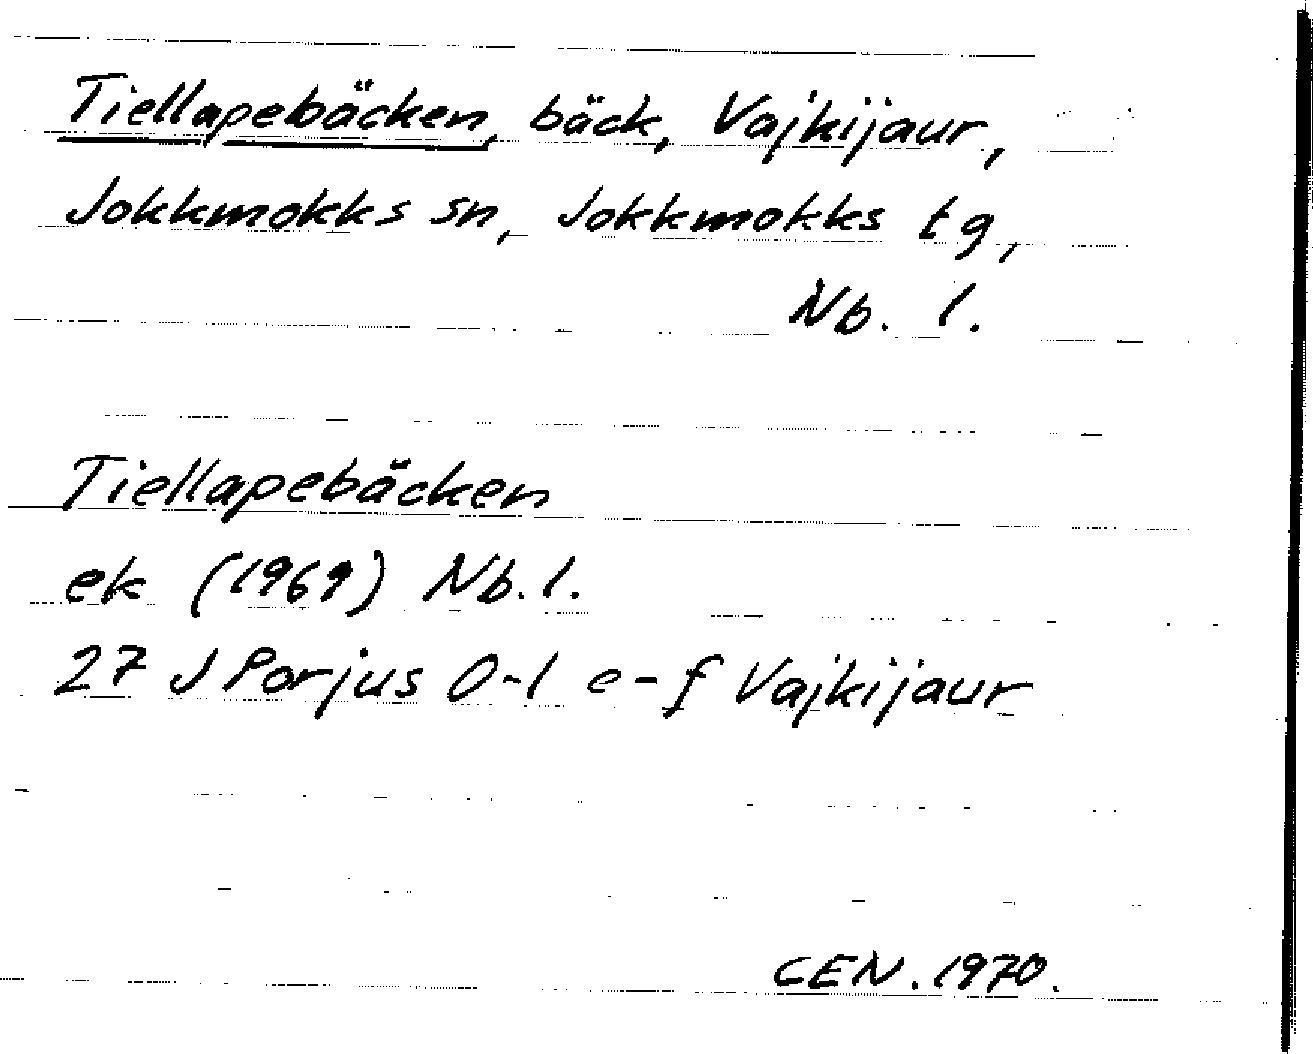 Tiellapebäcken, bäck, Vajkijaur,
Jokkmokks sn, Jokkmokks tg,
Nb. l.
Tiellapebäcken
ek (1969) Nb. l.
27 J Porjus 0-1 e-f Vajkijaur
CEN. 1970.